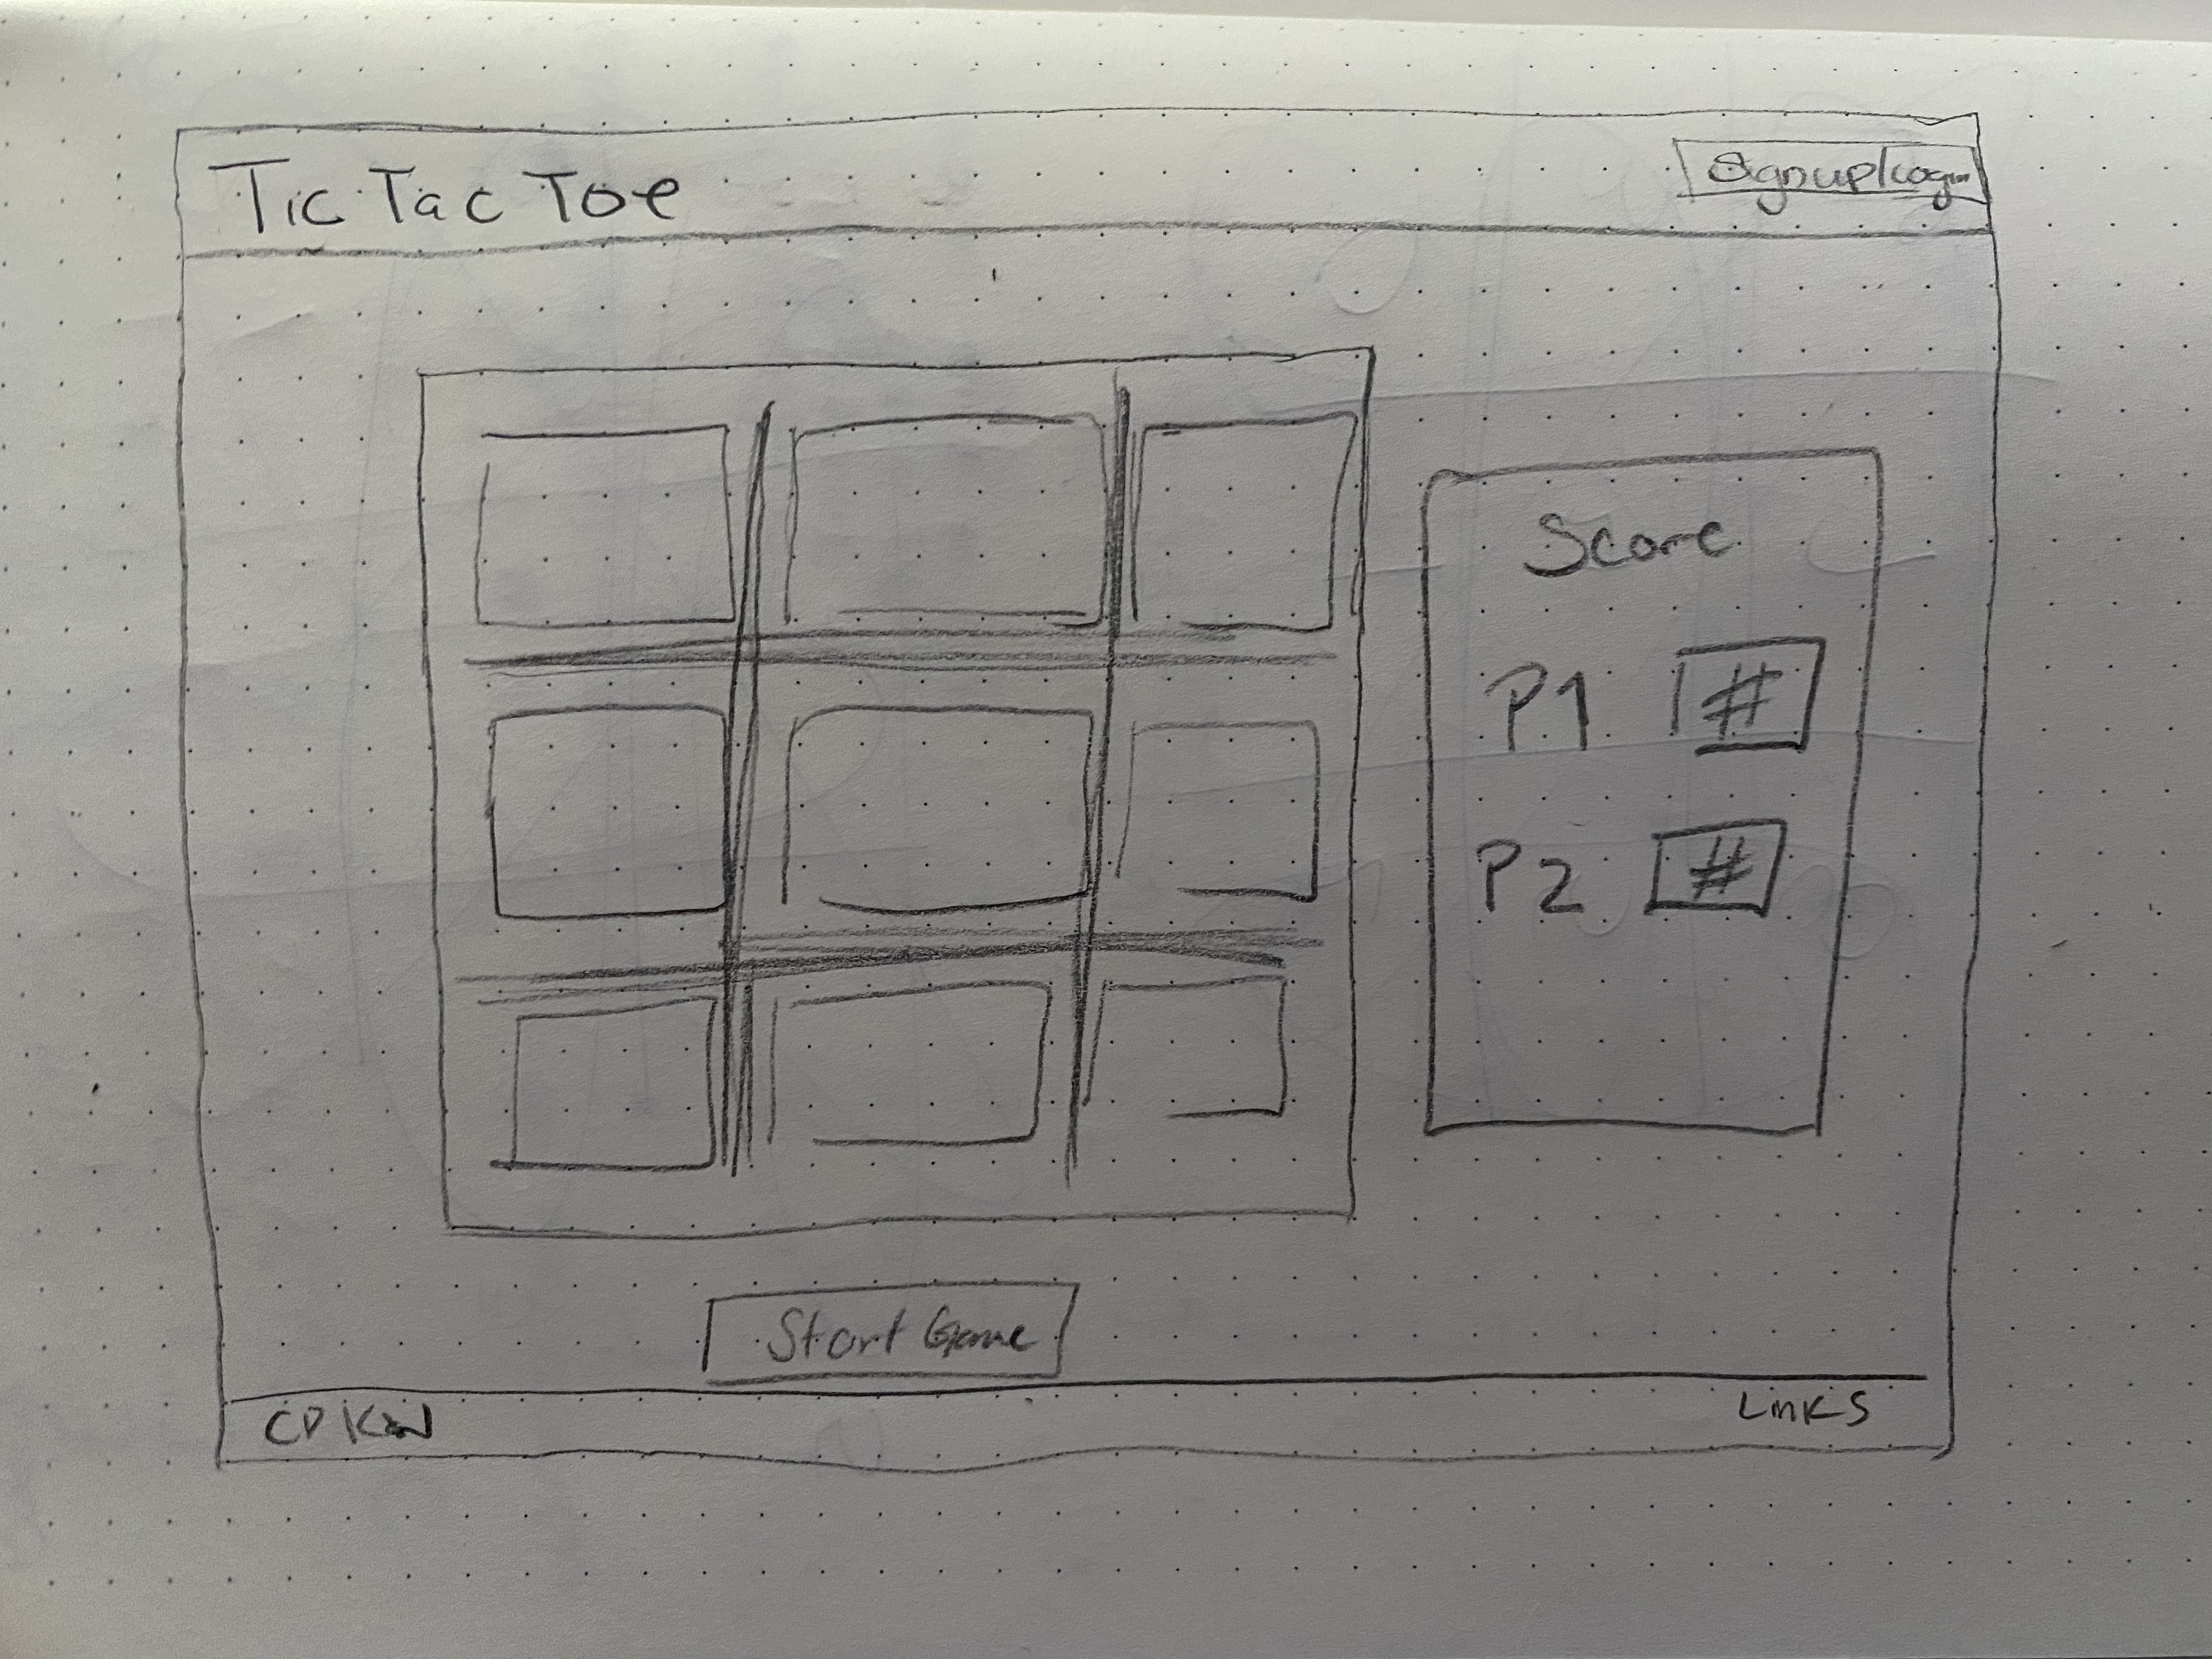 Tic Tac Toe
Signup/Login
Score
P1 #
P2 #
Start Game
Links